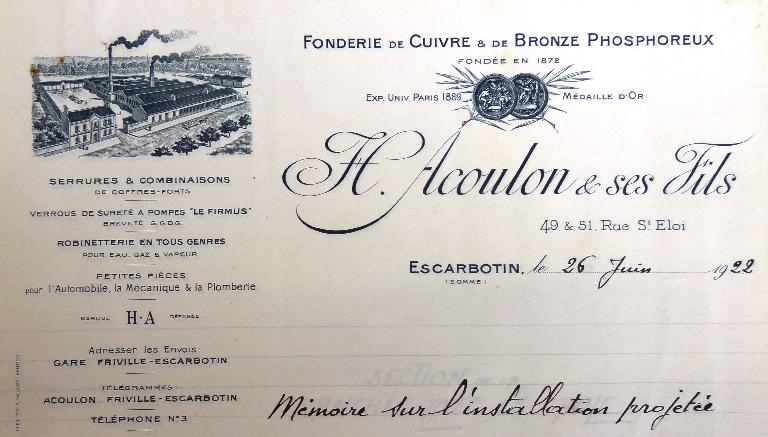 FONDERIE DE CUIVRE & DE BRONZE PHOSPHOREUX
FONDÉE EN 1872
EXP. UNIV. PARIS 1889
MÉDAILLE D'OR
H. Acoulon & ses Fils
49 & 51, Rue St Eloi
ESCARBOTIN, le 26 Juin 1922
(SOMME)
SERRURES & COMBINAISONS
DE COFFRES-FORTS
VERROUS DE SURETÉ A POMPES "LE FIRMUS"
BREVETÉ S.G.D.G.
ROBINETTERIE EN TOUS GENRES
POUR EAU, GAZ & VAPEUR
PETITES PIÈCES
pour l'Automobile, la Mécanique & la Plomberie
MARQUE H·A DÉPOSÉE
Adresser les Envois:
GARE FRIVILLE-ESCARBOTIN
TÉLÉGRAMMES:
ACOULON FRIVILLE-ESCARBOTIN
TÉLÉPHONE N°3
Mémoire sur l'installation projetée
SECTION